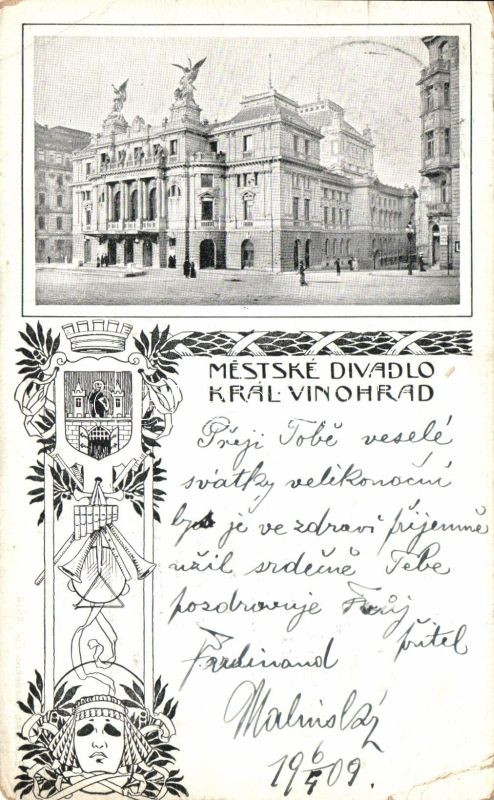 MĚSTSKÉ DIVADLO
KRÁL. VINOHRAD
Přeji Tobě veselé
svátky velikonoční
je ve zdraví příjemně
užil srdečně Tebe
pozdravuje Tvůj
přítel
Ferdinand
Malinský
19 6/4 09.